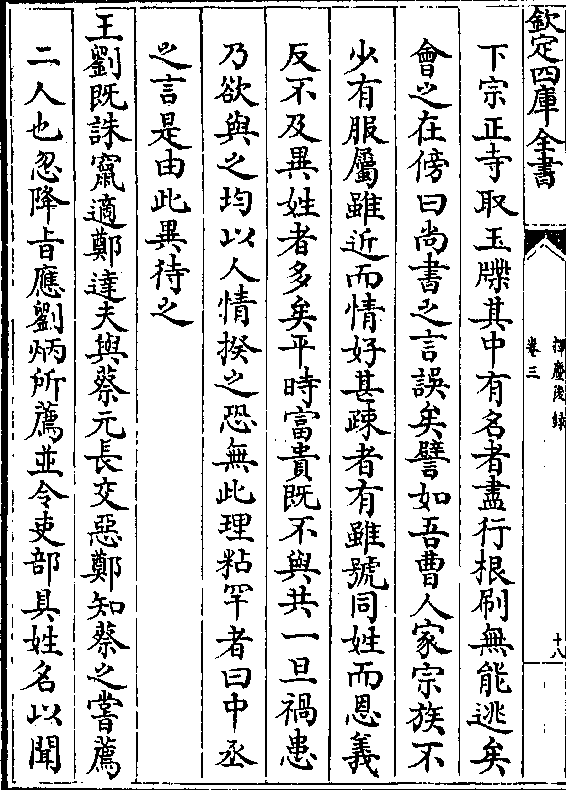 欽定四庫全書
揮麈後録
卷三
十八
下宗正寺取玉牒其中有名者盡行根刷無能逃矣
會之在傍曰尚書之言誤矣譬如吾曹人家宗族不
少有服屬雖近而情好甚疎者有雖號同姓而恩義
反不及異姓者多矣平時富貴既不與共一旦禍患
乃欲與之均以人情揆之恐無此理粘罕者曰中丞
之言是由此異待之
王劉既誅竄適鄭達夫與蔡元長交惡鄭知蔡之嘗薦
二人也忽降旨應劉炳所薦並令吏部具姓名以聞